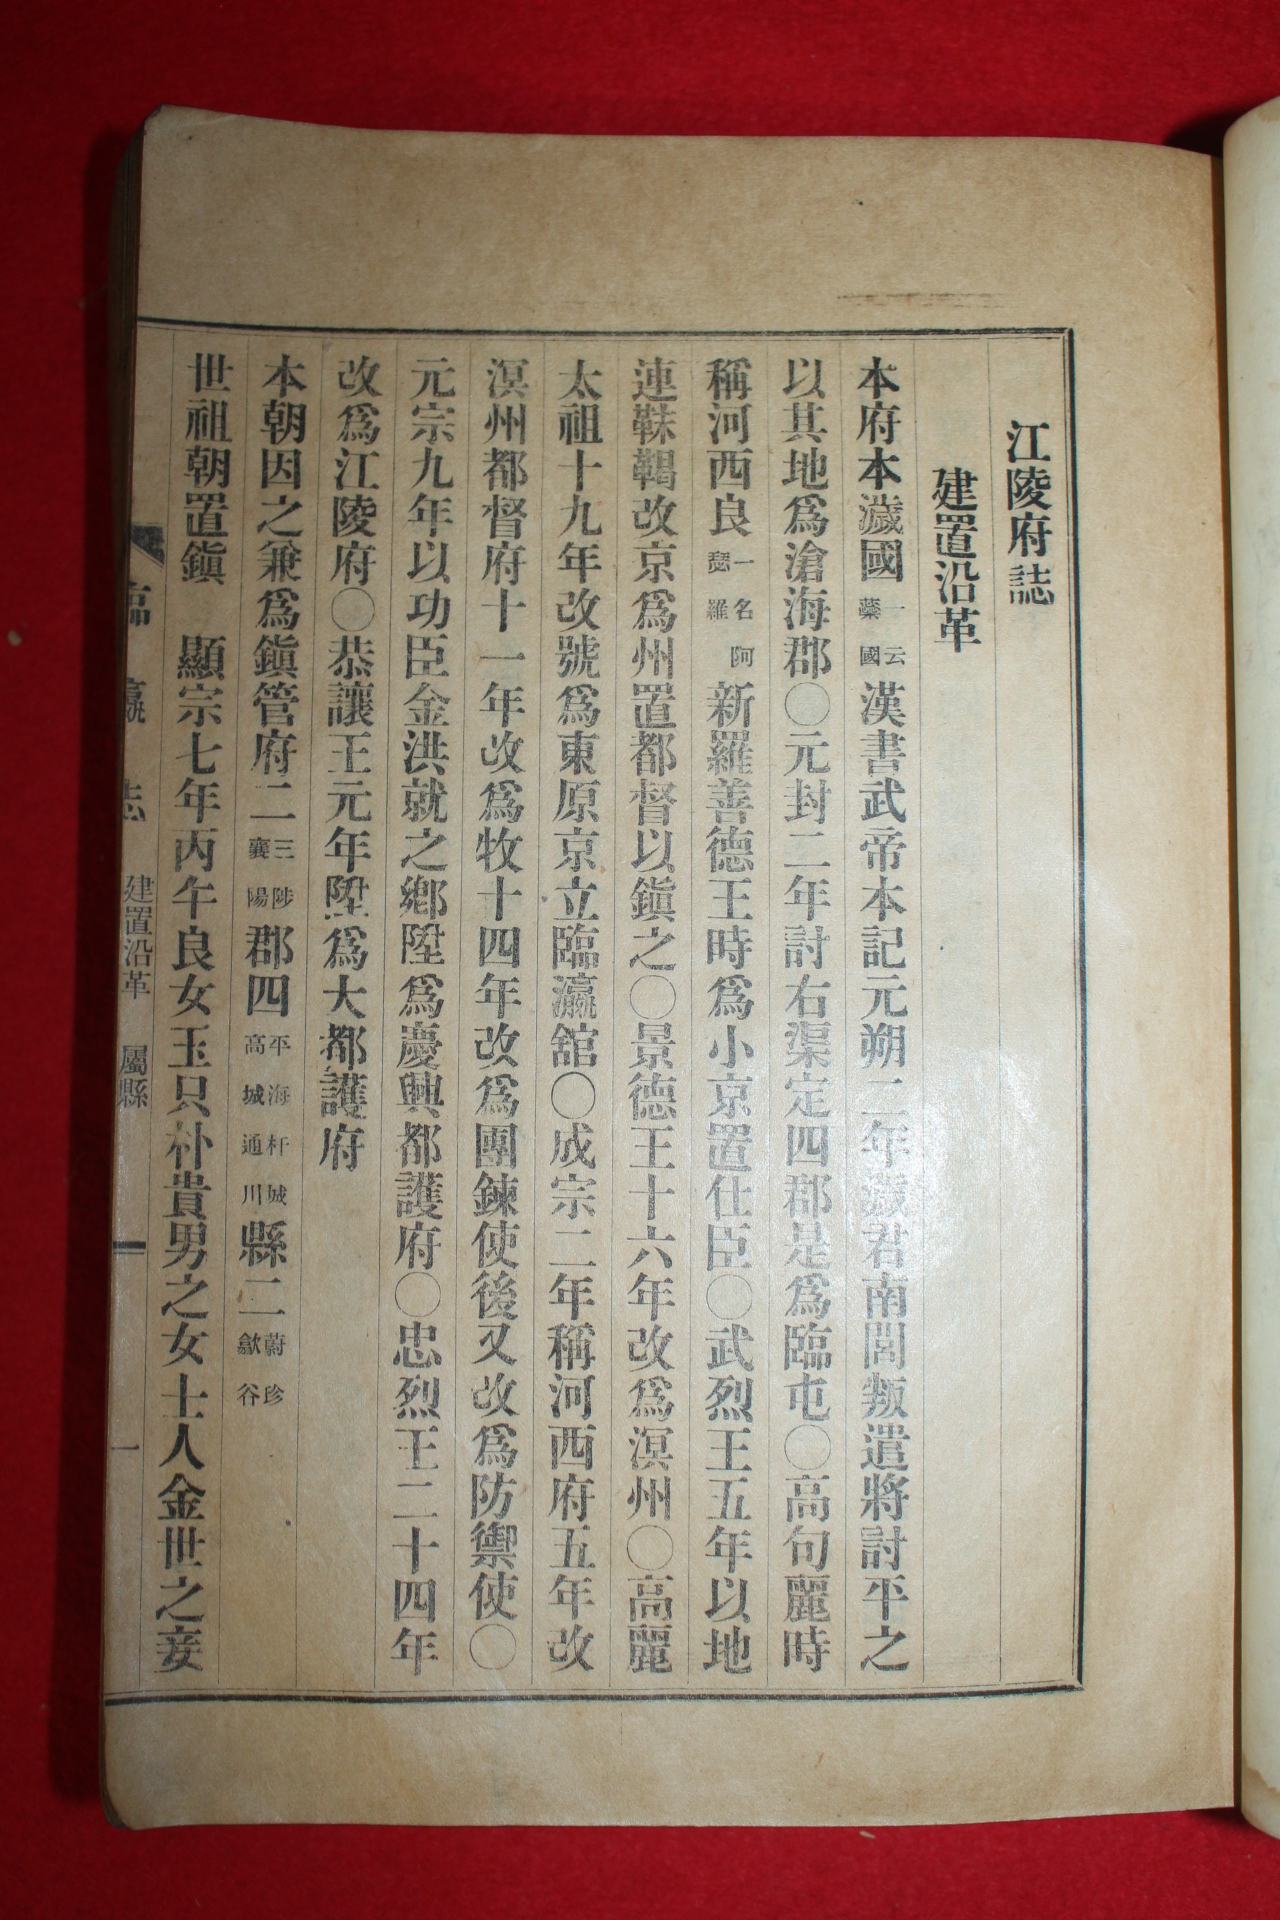 江陵府誌
建置沿革
本府本濊國一云蘂國漢書武帝本記元朔二年濊君南閭叛遣將討平之
以其地爲滄海郡○元封二年討右渠定四郡是爲臨屯○高句麗時
稱河西良一名阿瑟羅新羅善德王時爲小京置仕臣○武烈王五年以地
連靺鞨改京爲州置都督以鎭之○景德王十六年改爲溟州○高麗
太祖十九年改號爲東原京立臨瀛舘○成宗二年稱河西府五年改
溟州都督府十一年改爲牧十四年改爲團鍊使後又改爲防禦使○
元宗九年以功臣金洪就之鄕陞爲慶興都護府○忠烈王二十四年
改爲江陵府○恭讓王元年陞爲大都護府
本朝因之兼爲鎭管府二三陟襄陽郡四平海杆城高城通川縣二蔚珍歙谷
世祖朝置鎭 顯宗七年丙午良女玉只朴貴男之女士人金世之妾
臨瀛誌 建置沿革 屬縣 一